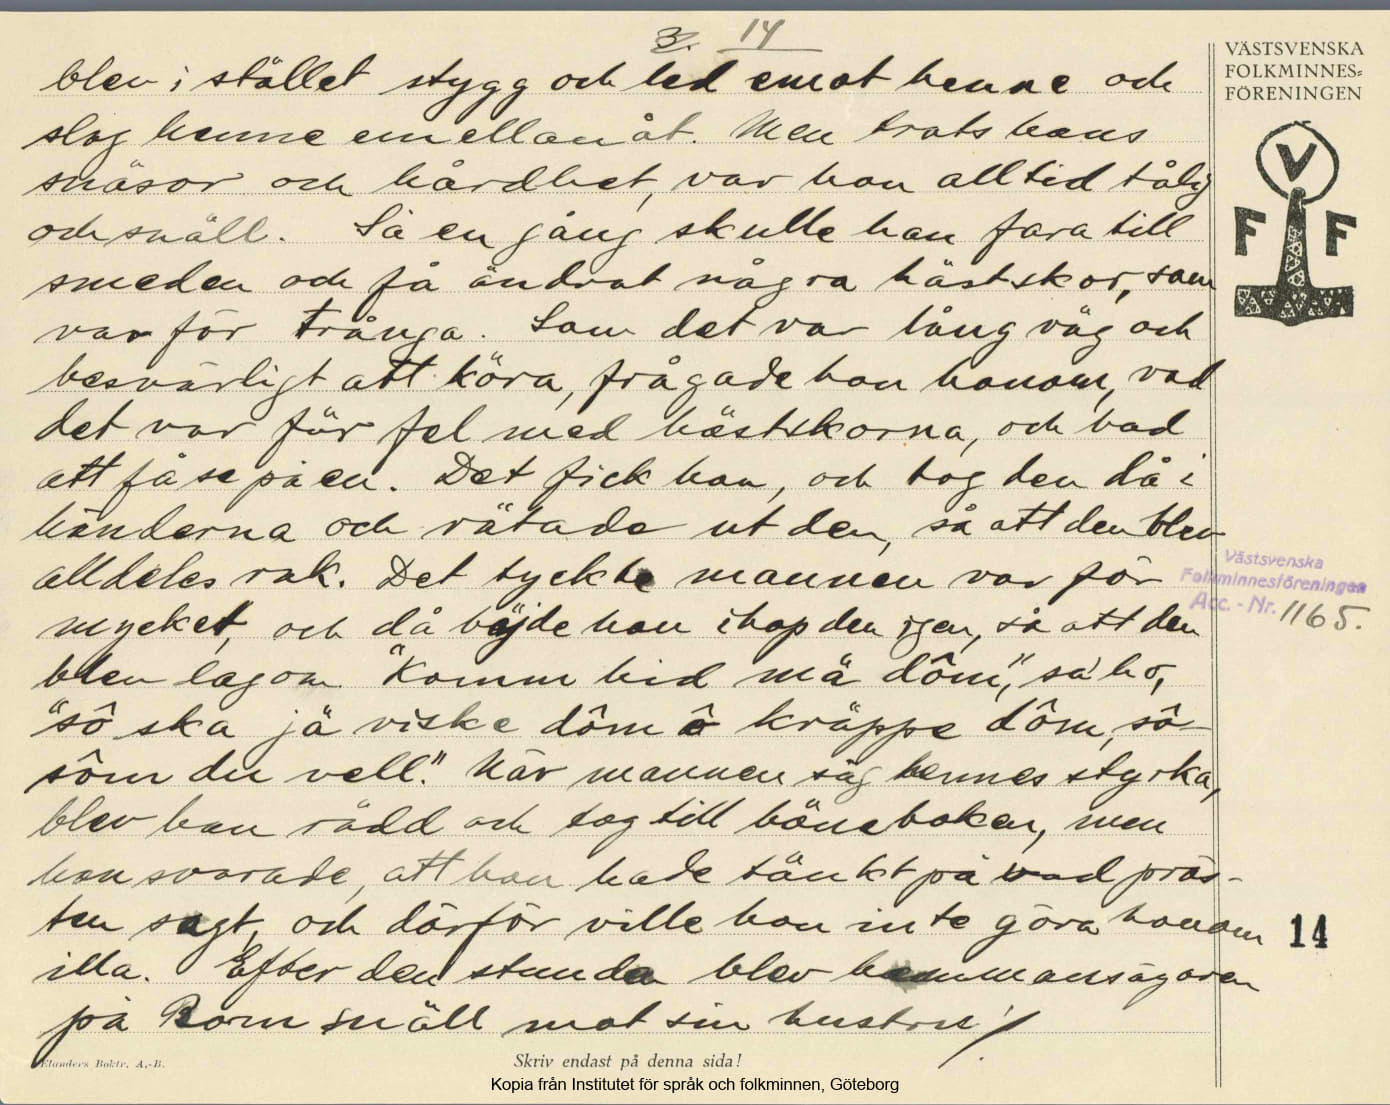 3. 14
VÄSTSVENSKA
FOLKMINNES-
FÖRENINGEN
V
F F
blev i stället stygg och led emot henne och
slog henne emellanåt. Men trots hans
snäsor och hårdhet, var hon alltid tålig
och snäll. Så en gång skulle han fara till
smeden och få ändrat några hästskor, som
var för trånga. Som det var lång väg och
besvärligt att köra, frågade hon honom, vad
det var för fel med hästskorna, och bad
att få se på en. Det fick hon, och tog den då i
händerna och rätade ut den, så att den blev
alldeles rak. Det tyckte mannen var för
mycket, och då böjde hon ihop den igen, så att den
blev lagom. "Komm hid mä dôm", sa' ho,
"sô ska jä viske dôm ô kräppe dôm, sô-
sôm du vell." När mannen såg hennes styrka,
blev han rädd och tog till böneboken, men
hon svarade, att hon hade tänkt på vad präs-
ten sagt, och därför ville hon inte göra honom
illa. Efter den stunden blev hemmansägaren
på Born snäll mot sin hustru!
Västsvenska
Folkminnesföreningen
Acc. - Nr. 1165.
14
Elanders Boktr. A.-B.
Skriv endast på denna sida!
Kopia från Institutet för språk och folkminnen, Göteborg